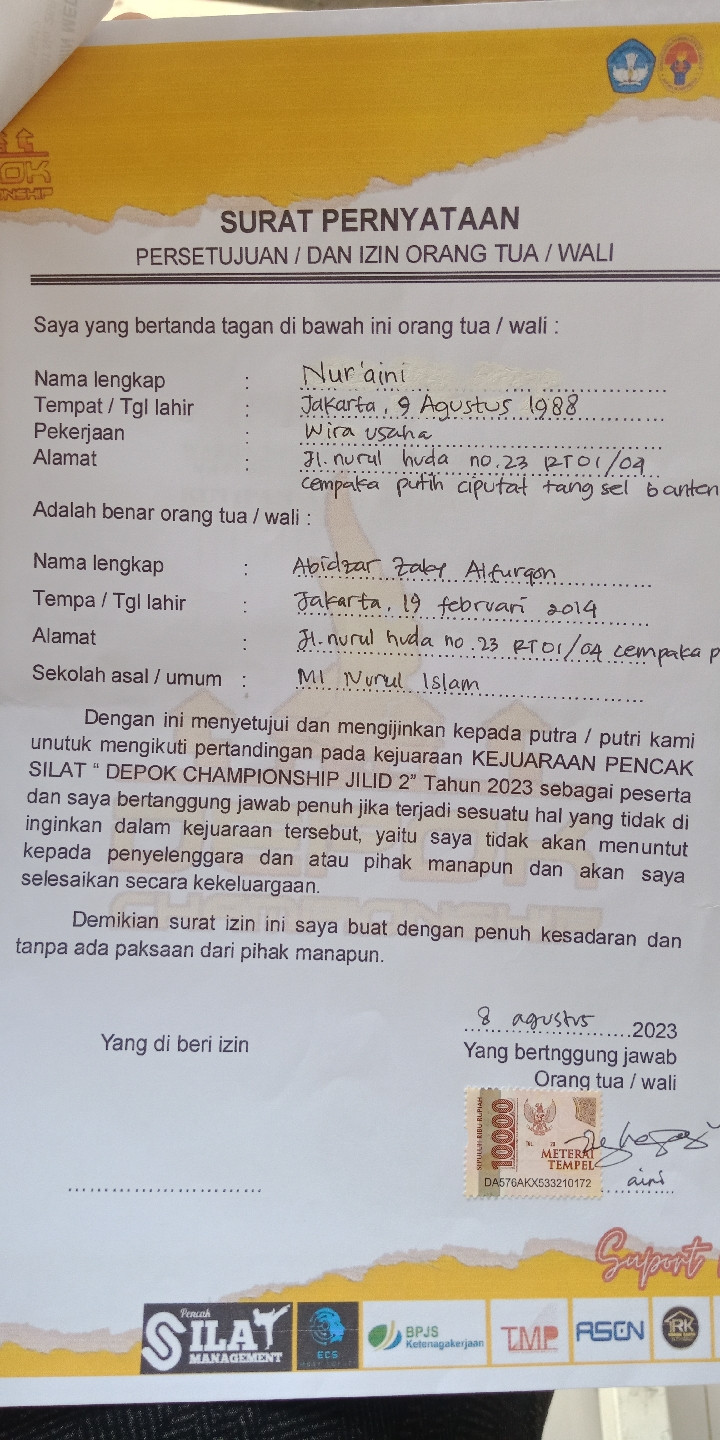 OK
NSHIP
SURAT PERNYATAAN
PERSETUJUAN / DAN IZIN ORANG TUA / WALI
Saya yang bertanda tagan di bawah ini orang tua / wali :
Nama lengkap : Nur'aini
Tempat / Tgl lahir : Jakarta, 9 Agustus 1988
Pekerjaan : Wira usaha
Alamat : Jl. nurul huda no. 23 RT 01/04
cempaka putih ciputat tang sel banten
Adalah benar orang tua / wali :
Nama lengkap : Abidzar Zaky Alfurqon
Tempa / Tgl lahir : Jakarta, 19 februari 2014
Alamat : Jl. nurul huda no. 23 RT 01/04 cempaka p
Sekolah asal / umum : MI Nurul Islam
Dengan ini menyetujui dan mengijinkan kepada putra / putri kami
unutuk mengikuti pertandingan pada kejuaraan KEJUARAAN PENCAK
SILAT “ DEPOK CHAMPIONSHIP JILID 2” Tahun 2023 sebagai peserta
dan saya bertanggung jawab penuh jika terjadi sesuatu hal yang tidak di
inginkan dalam kejuaraan tersebut, yaitu saya tidak akan menuntut
kepada penyelenggara dan atau pihak manapun dan akan saya
selesaikan secara kekeluargaan.
Demikian surat izin ini saya buat dengan penuh kesadaran dan
tanpa ada paksaan dari pihak manapun.
8 agustus 2023
Yang di beri izin
Yang bertnggung jawab
Orang tua / wali
SEPULUH RIBU RUPIAH
10000
METERAI
TEMPEL
DA576AKX533210172
aini
Suport
Pencak
SILAT
MANAGEMENT
ECS
BPJS
Ketenagakerjaan
TMP
ASCN
RK